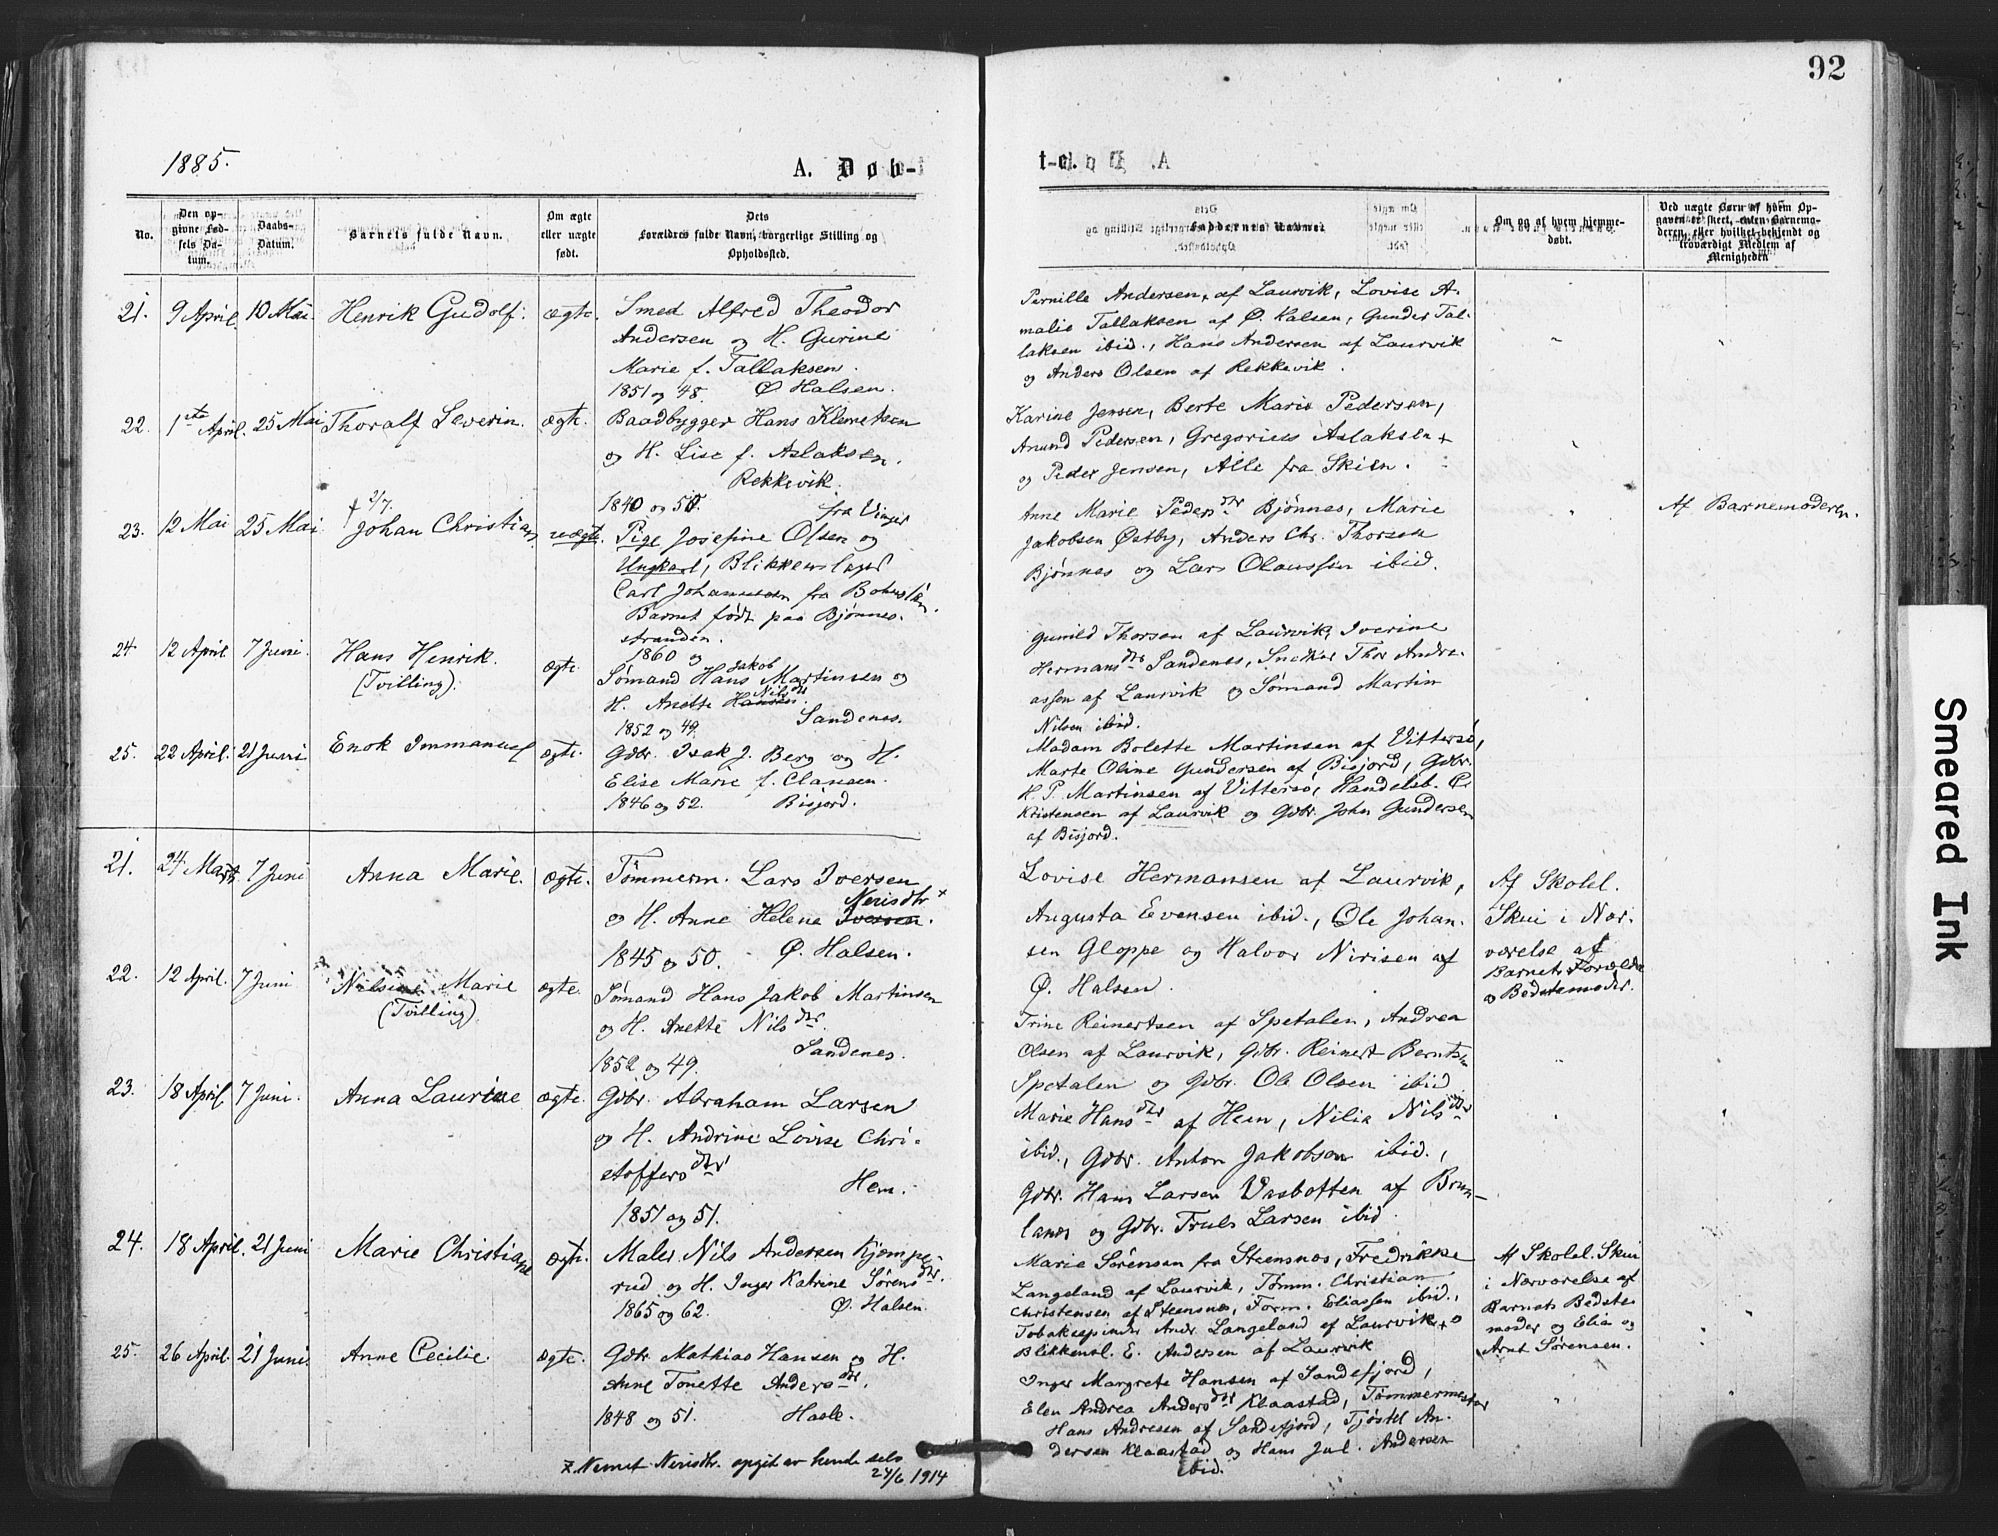 92
1885.
A. Døb-
t-e.
No.
Den op-
givne Fød-
sels Da-
tum.
Daabs-
Datum.
Barnets fulde Navn.
Om ægte
eller uægte
født.
Dets
Forældres fulde Navn, borgerlige Stilling og
Opholdssted.
Faddernes Navne.
Om og af hvem hjemme-
døbt.
Ved uægte Børn af hvem Op-
gaven er skeet, enten Barnemo-
deren, eller hvilket bekjendt og
troværdigt Medlem af
Menigheden
21. 9 April. 10 Mai. Henrik Gudolf. ægte.
Smed Alfred Theodor
Andersen og H. Gurine
Marie f. Tallaksen.
1851 og 48. Ø Halsen.
Pernille Andersen, af Laurvik, Lovise A-
malie Tallaksen af Ø. Halsen, Gunder Tal-
laksen ibid., Hans Andersen af Laurvik
og Anders Olsen af Rekkevik.
22. 1ste April. 25 Mai Thoralf Severin. ægte.
Baadbygger Hans Klemetsen
og H. Lise f. Aslaksen.
Rekkevik.
1840 og 50.
Karine Jensen, Berte Marie Pedersen,
Anund Pedersen, Gregorius Aslaksen
og Peder Jensen, Alle fra Skien.
23. 12 Mai 25 Mai † 2/7. Johan Christian uægte.
fra Vinger
Pige Josefine Olsen og
Ungkarl, Blikkenslager
Carl Johannessen fra Bohuslän.
Barnet født paa Bjønnes-
stranden.
1860 og
Anne Marie Pedersdtr Bjønnes, Marie
Jakobsen Østby, Anders Chr. Thorsen
Bjønnes og Lars Olaussen ibid.
Af Barnemoderen.
24. 12 April 7 Juni. Hans Henrik.
(Tvilling).
ægte.
Sømand Hans Jakob Martinsen og
H. Anette Hansen Nilsdtr.
1852 og 49. Sandenes.
Gunild Thorsen af Laurvik, Iverine
Hermansdtr Sandenes, Snedker Thor Andre-
assen af Laurvik og Sømand Martin
Nilsen ibid.
25. 22 April. 21 Juni Enok Immanuel ægte.
Gdbr. Isak J. Berg og H.
Elise Marie f. Clausen.
1846 og 52. Bisjord.
Madam Bolette Martinsen af Vittersø,
Marte Oline Gundersen af Bisjord, Gdbr.
H. P. Martinsen af Vittersø, Handelsb. C.
Kristensen af Laurvik og Gdbr. John Gundersen
af Bisjord.
21. 24 Marts 7 Juni Anna Marie. ægte.
Tømmerm. Lars Iversen
og H. Anne Helene Iversen. Nerisdtr ×
1845 og 50. Ø. Halsen.
Lovise Hermansen af Laurvik,
Augusta Evensen ibid., Ole Johan-
sen Gloppe og Halvor Nirisen af
Ø. Halsen.
Af Skolel.
Skui i Nær-
værelse af
Barnets Forældre
og Bedstemoder.
22. 12 April. 7 Juni Nilsine Marie
(Tvilling)
ægte.
Sømand Hans Jakob Martinsen
og H. Anette Nilsdtr.
Sandenes.
1852 og 49.
Trine Reinertsen af Spetalen, Andrea
Olsen af Laurvik, Gdbr. Reinert Berntsen
Spetalen og Gdbr. Ole Olsen ibid
23. 18 April 7 Juni. Anna Laurine ægte.
Gdbr. Abraham Larsen
og H. Andrine Lovise Chri-
stoffersdtr
Hem.
1851 og 51.
Marie Hansdtr af Hem, Nilia Nilsdtr
ibid., Gdbr. Anton Jakobsen ibid.,
Gdbr. Hans Larsen Vasbotten af Brun-
lanes og Gdbr. Truls Larsen ibid
24. 18 April. 21 Juni Marie Christiane ægte.
Maler Nils Andersen Kjempe-
rud og H. Inger Katrine Sørensdtr.
1865 og 62. Ø. Halsen.
Marie Sørensen fra Steensnæs, Fredrikke
Langeland af Laurvik, Tømm. Christian
Christensen af Steensnæs, Form. Eliassen ibid.,
Tobakspinder Andr. Langeland af Laurvik
Blikkensl. E. Andersen af Laurvik
Af Skolel. Skui
i Nærværelse af
Barnets Bedste-
moder og Elia og
Arnt Sørensen.
25. 26 April. 21 Juni. Anne Cecilie. ægte.
Gdbr Mathias Hansen og H.
Anne Tonette Andersdtr.
1848 og 51. Hasle.
Inger Margrete Hansen af Sandefjord,
Elen Andrea Andersdtr Klaastad, Tømmermester
Hans Andresen af Sandefjord, Tjøstel An-
dersen Klaastad og Hans Jul. Andersen
ibid.
× Navnet Nerisdtr. opgit av hende selv
24/6 1914
Smeared Ink